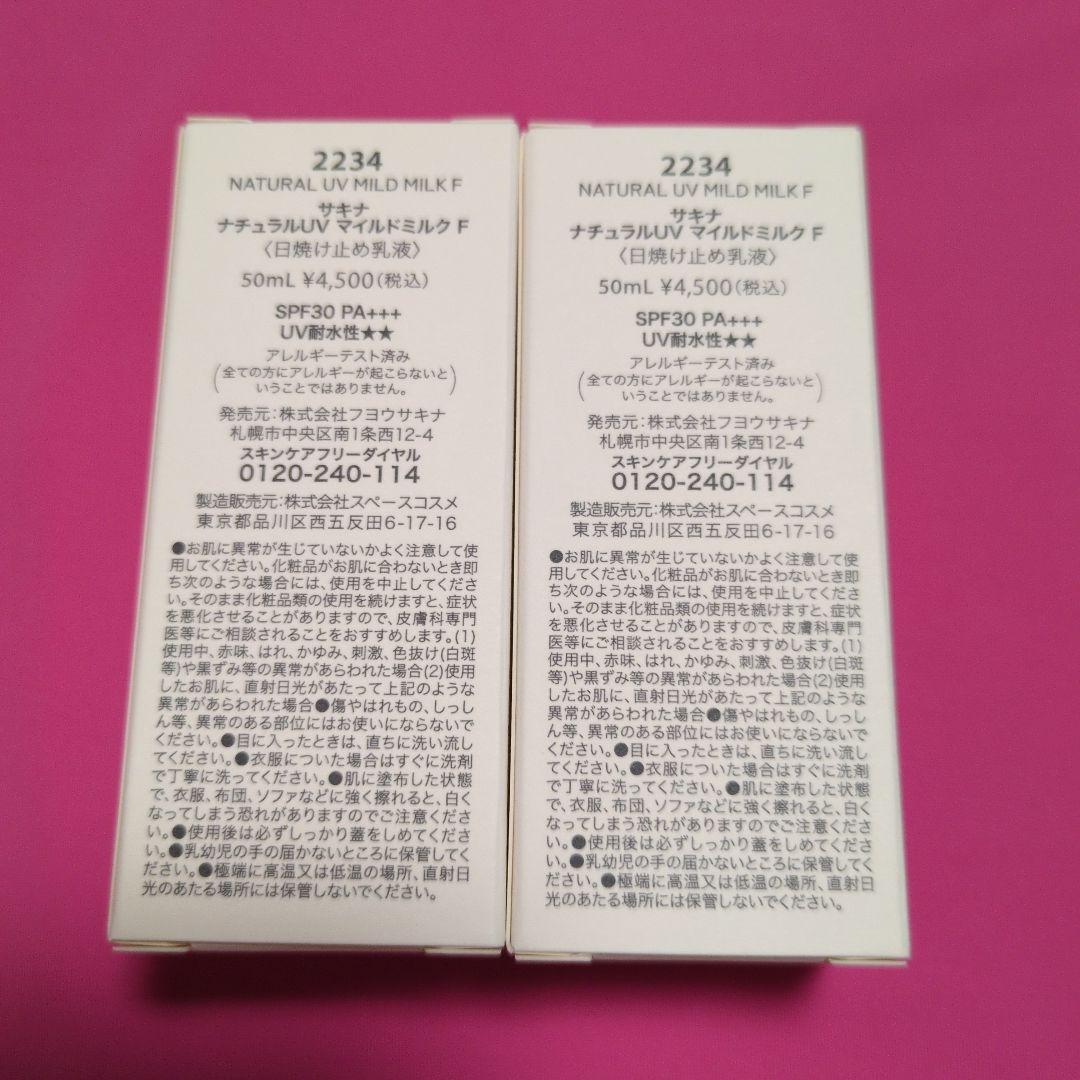 2234
NATURAL UV MILD MILK F
サキナ
ナチュラルUV マイルドミルク F
〈日焼け止め乳液〉
50mL ¥4,500(税込)
SPF30 PA+++
UV耐水性★★
アレルギーテスト済み
(全ての方にアレルギーが起こらないと
いうことではありません。)
発売元:株式会社フヨウサキナ
札幌市中央区南1条西12-4
スキンケアフリーダイヤル
0120-240-114
製造販売元:株式会社スペースコスメ
東京都品川区西五反田6-17-16
●お肌に異常が生じていないかよく注意して使
用してください。化粧品がお肌に合わないとき即
ち次のような場合には、使用を中止してくださ
い。そのまま化粧品類の使用を続けますと、症状
を悪化させることがありますので、皮膚科専門
医等にご相談されることをおすすめします。(1)
使用中、赤味、はれ、かゆみ、刺激、色抜け(白斑
等)や黒ずみ等の異常があらわれた場合(2)使用
したお肌に、直射日光があたって上記のような
異常があらわれた場合●傷やはれもの、しっし
ん等、異常のある部位にはお使いにならないで
ください。●目に入ったときは、直ちに洗い流し
てください。●衣服についた場合はすぐに洗剤
で丁寧に洗ってください。●肌に塗布した状態
で、衣服、布団、ソファなどに強く擦れると、白く
なってしまう恐れがありますのでご注意くださ
い。●使用後は必ずしっかり蓋をしめてくださ
い。●乳幼児の手の届かないところに保管してく
ださい。●極端に高温又は低温の場所、直射日
光のあたる場所には保管しないでください。
2234
NATURAL UV MILD MILK F
サキナ
ナチュラルUV マイルドミルク F
〈日焼け止め乳液〉
50mL ¥4,500(税込)
SPF30 PA+++
UV耐水性★★
アレルギーテスト済み
(全ての方にアレルギーが起こらないと
いうことではありません。)
発売元:株式会社フヨウサキナ
札幌市中央区南1条西12-4
スキンケアフリーダイヤル
0120-240-114
製造販売元:株式会社スペースコスメ
東京都品川区西五反田6-17-16
●お肌に異常が生じていないかよく注意して使
用してください。化粧品がお肌に合わないとき即
ち次のような場合には、使用を中止してくださ
い。そのまま化粧品類の使用を続けますと、症状
を悪化させることがありますので、皮膚科専門
医等にご相談されることをおすすめします。(1)
使用中、赤味、はれ、かゆみ、刺激、色抜け(白斑
等)や黒ずみ等の異常があらわれた場合(2)使用
したお肌に、直射日光があたって上記のような
異常があらわれた場合●傷やはれもの、しっし
ん等、異常のある部位にはお使いにならないで
ください。●目に入ったときは、直ちに洗い流し
てください。●衣服についた場合はすぐに洗剤
で丁寧に洗ってください。●肌に塗布した状態
で、衣服、布団、ソファなどに強く擦れると、白く
なってしまう恐れがありますのでご注意くださ
い。●使用後は必ずしっかり蓋をしめてくださ
い。●乳幼児の手の届かないところに保管してく
ださい。●極端に高温又は低温の場所、直射日
光のあたる場所には保管しないでください。